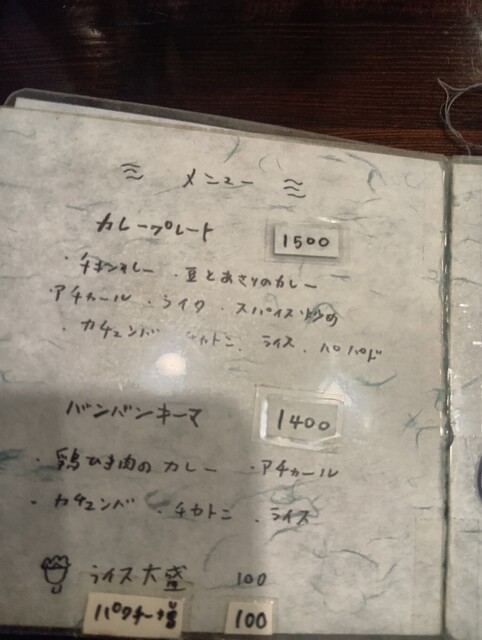 メニュー
カレープレート 1500
・チキンカレー ・豆とあさりのカレー
・アチャール ・ライタ ・スパイス炒め
・カチュンバ ・チカトニ ・ライス ・パパド
バンバンキーマ 1400
・鶏ひき肉のカレー ・アチャール
・カチュンバ ・チカトニ ・ライス
ライス大盛 100
パクチー増 100